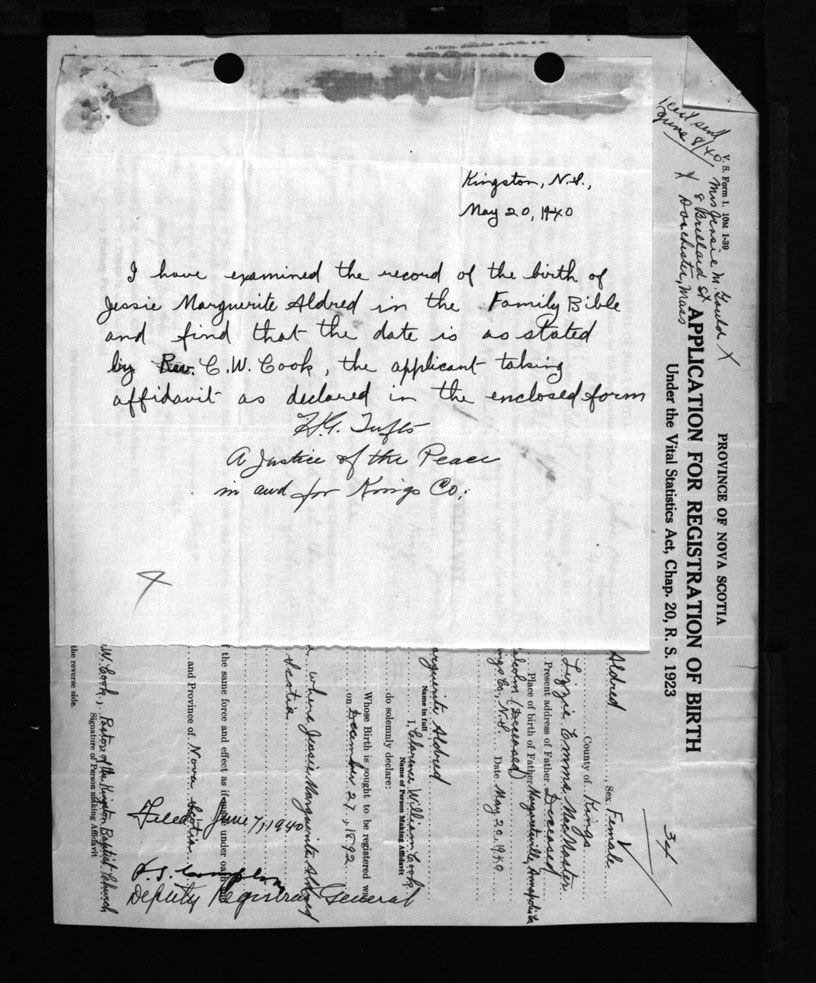 Kingston, N.S.,
May 20, 1940
I have examined the record of the birth of
Jessie Marguerite Aldred in the Family Bible
and find that the date is as stated
by Rev. C. W. Cook, the applicant taking
affidavit as declared in the enclosed form
H. G. Tufts
A Justice of the Peace
in and for Kings Co.
4
1 cert sent
June 8/40
V. S. Form 1. 10M 1-39
X
Mrs Jessie M. Gould X
Dorchester, Mass
PROVINCE OF NOVA SCOTIA
APPLICATION FOR REGISTRATION OF BIRTH
Under the Vital Statistics Act, Chap. 20, R. S. 1923
34
Aldred Sex Female
County of Kings
Lizzie Emma MacMaster
Present address of Father Deceased
Place of birth of Father Margaretville, Annapolis
(Deceased)
ngs Co., N.S. Date May 20, 1940
I, Clarence William Cook
Name of Person Making Affidavit
arguerite Aldred
Name in full
do solemnly declare:
Whose Birth is sought to be registered was
on December 27, 1892
where Jessie Marguerite Aldred
Scotia
the same force and effect as if made under oath
and Province of Nova Scotia
Filed June 7, 1940
Deputy Registrar General
W. Cook, Pastor of the Kingston Baptist Church
Signature of Person making Affidavit
the reverse side.